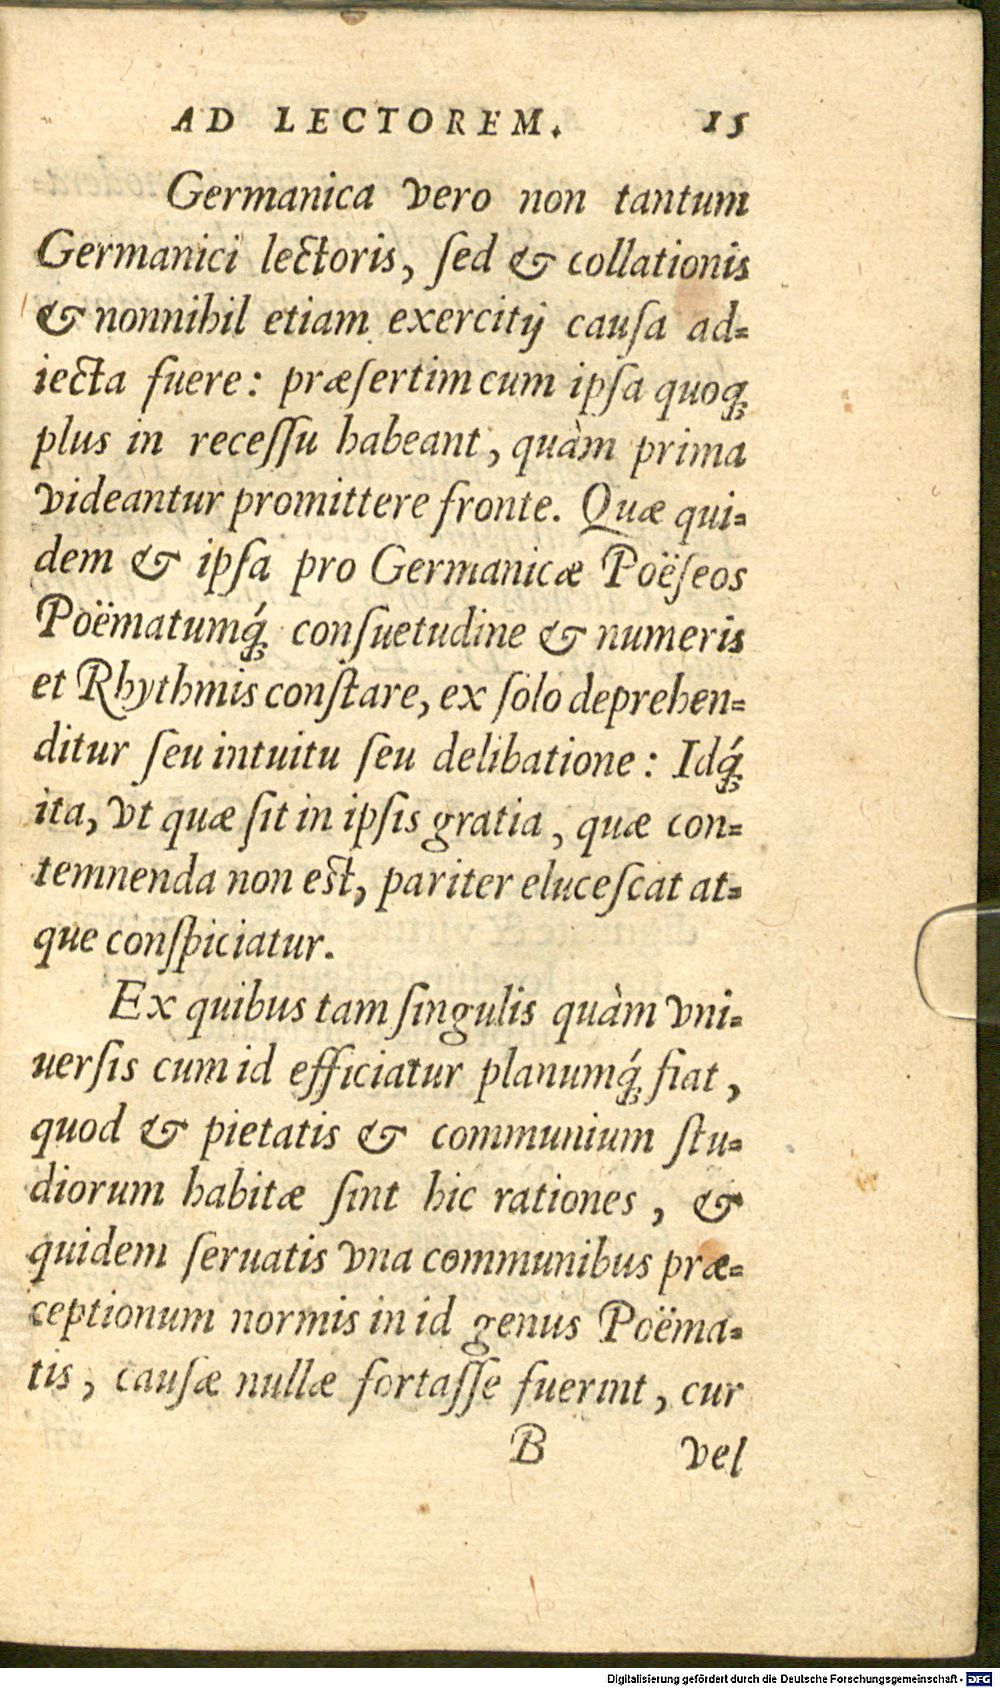 AD LECTOREM. 15
Germanica vero non tantum
Germanici lectoris, ſed & collationis
& nonnihil etiam exercitij cauſa ad-
iecta fuere: præſertim cum ipſa quoq;
plus in receſſu habeant, quàm prima
videantur promittere fronte. Quæ qui-
dem & ipſa pro Germanicæ Poëſeos
Poëmatumq́; conſuetudine & numeris
et Rhythmis conſtare, ex ſolo deprehen-
ditur ſeu intuitu ſeu delibatione: Idq́;
ita, vt quæ ſit in ipſis gratia, quæ con-
temnenda non est, pariter eluceſcat at-
que conſpiciatur.
Ex quibus tam ſingulis quàm vni-
uerſis cum id efficiatur planumq́; fiat,
quod & pietatis & communium ſtu-
diorum habitæ ſint hic rationes, &
quidem ſeruatis vna communibus præ-
ceptionum normis in id genus Poëma-
tis, cauſæ nullæ fortaſſe fuerint, cur
B vel
Digitalisierung gefördert durch die Deutsche Forschungsgemeinschaft - DFG